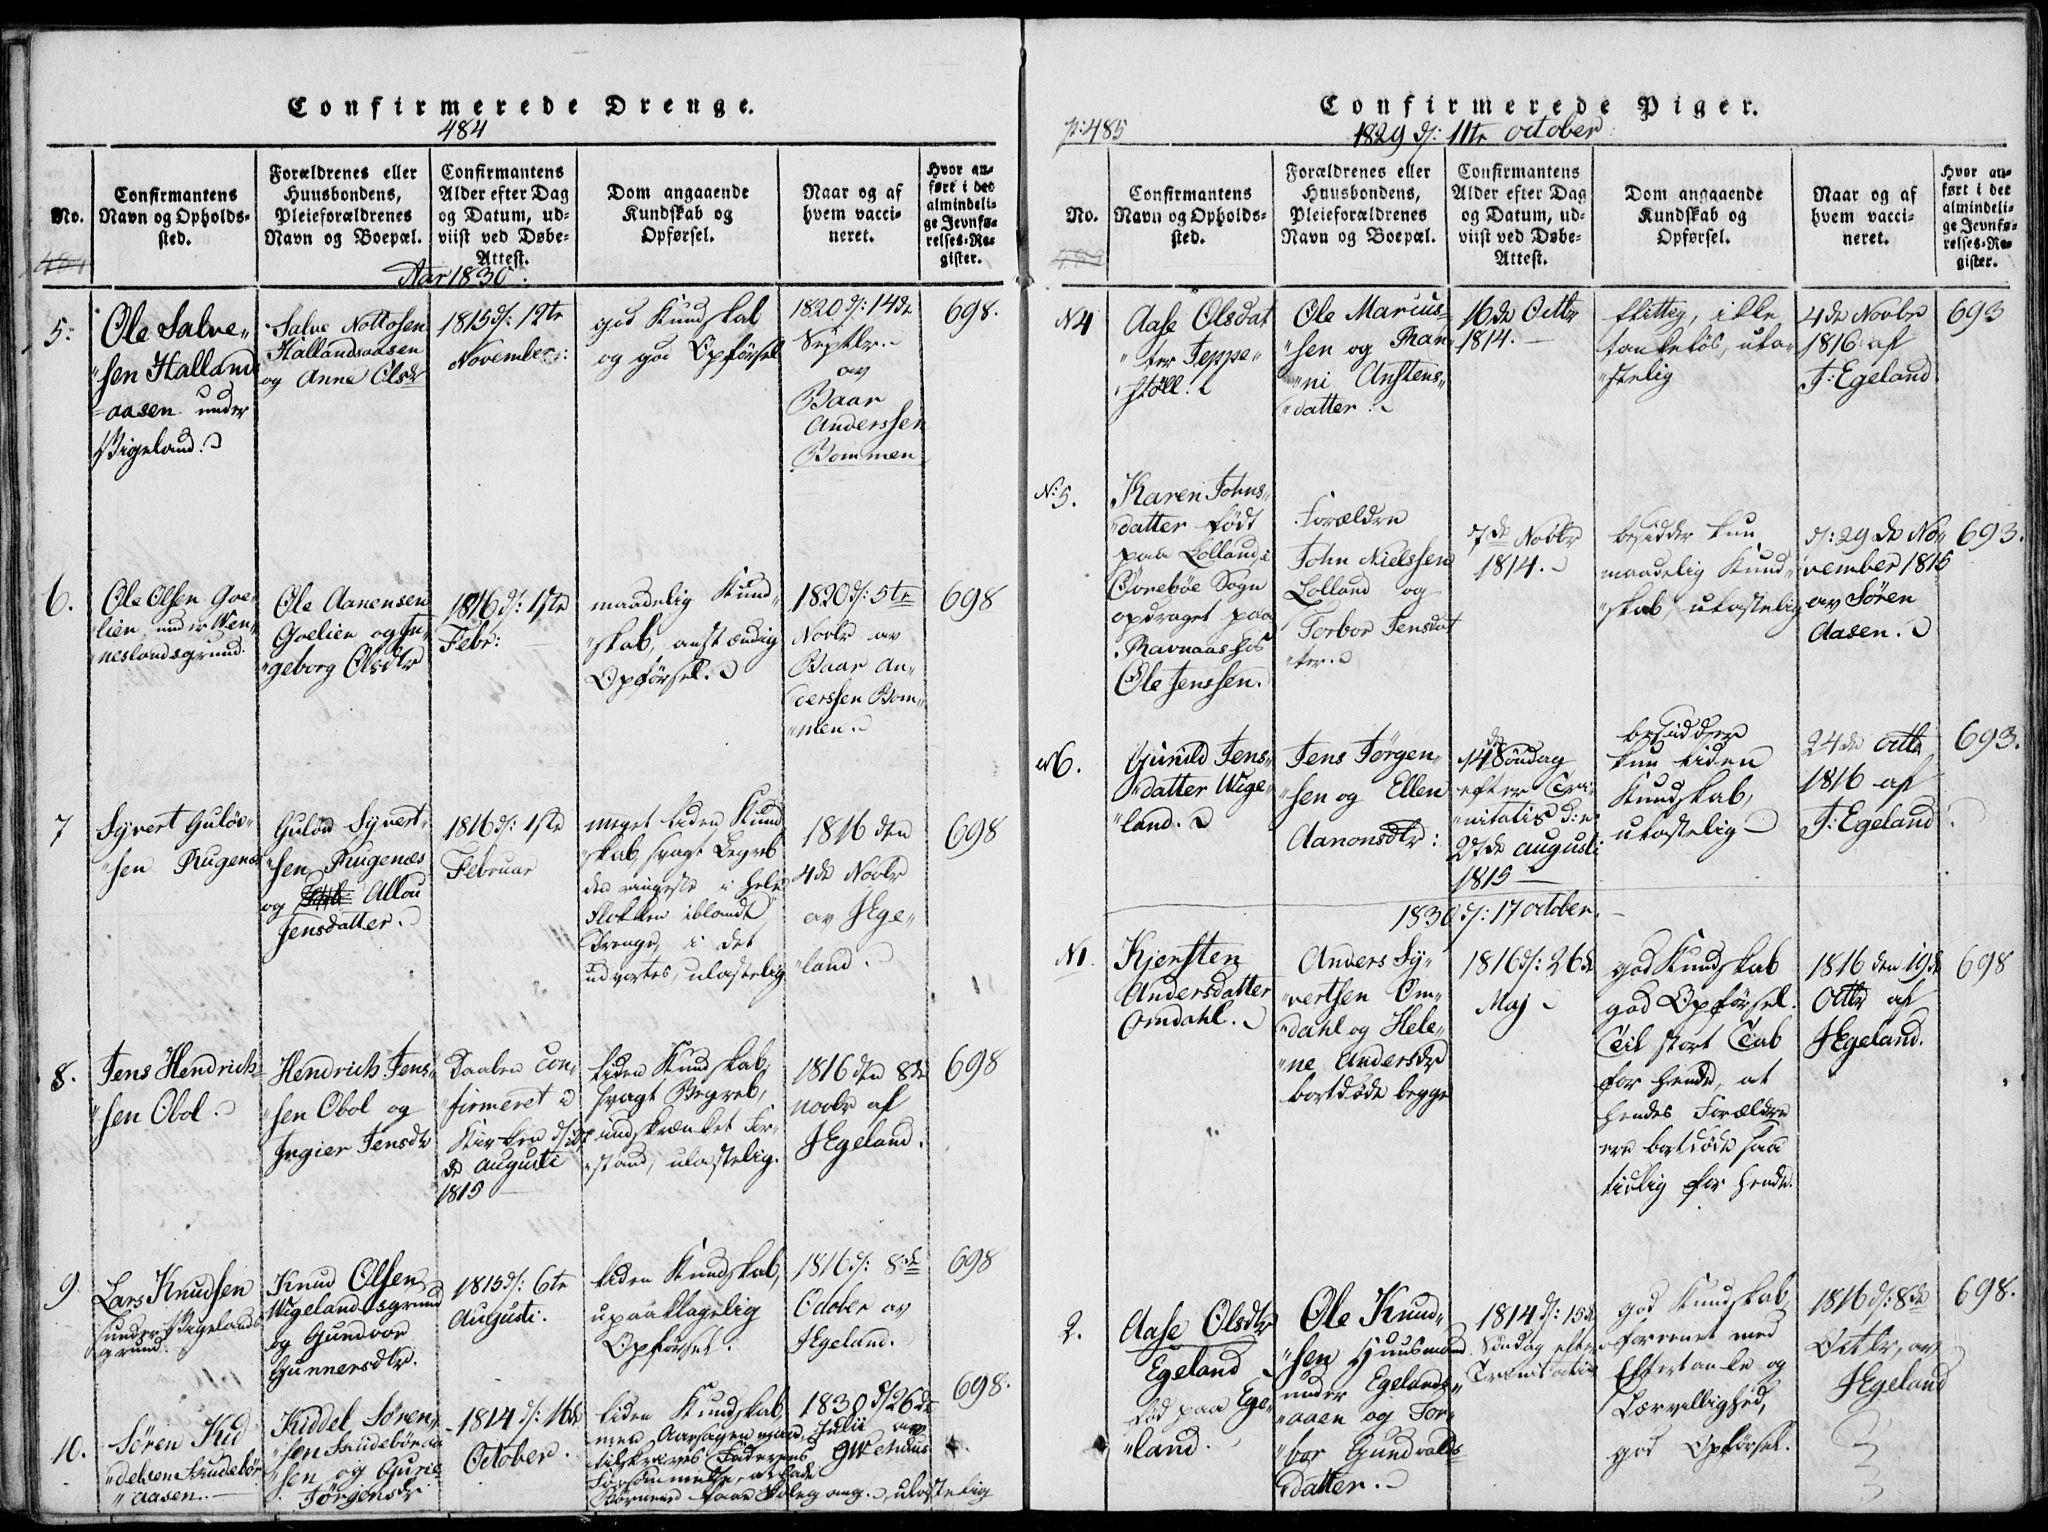 Confirmerede Drenge.
484
No.
Confirmantens
Navn og Opholds-
sted.
Forældrenes eller
Huusbondens,
Pleieforældrenes
Navn og Boepæl.
Confirmantens
Alder efter Dag
og Datum, ud-
viist ved Døbe-
Attest.
Dom angaaende
Kundskab og
Opførsel.
Naar og af
hvem vacci-
neret.
Hvor an-
ført i det
almindeli-
ge Jevnfø-
relses-Re-
gister.
Aar 1830.
5.
Ole Salve-
sen Hallands
aasen under
Vigeland.
Salve Nottosen
Hallandsaasen
og Anne Olsdr
1815 d: 12te
November:
god Kundskab
og god Opførsel
1820 d: 14de
Septbr.
av
Baar
Anderssen
Bommen
698.
6.
Ole Olsen Goe-
lien under Ven-
neslandsgrund.
Ole Aanensen
Goelien og In-
geborg Olsdtr
1816 d: 1ste
Febr:
maadelig Kund-
skab, anstændig
Opførsel.
1820 d: 5te
Novbr av
Baar An-
derssen Bom-
men.
698
7
Syvert Guløv-
sen Rugenæs
Guløv Syvert-
sen Rugenæs
og Allou
Jensdatter.
1816 d: 1ste
Februar
meget liden Kund-
skab, svagt Begreb
den ringeste i hele
Flokken iblandt
Drenge, i det
udvortes, ulastelig
1816 den
4de Novbr
av J Ege-
land.
698
8.
Jens Hendrich-
sen Obol.
Hendrich Jens-
sen Obol og
Ingier Jensdr
Daaben con-
firmeret i
Kirken
de Augusti
1815
liden Kundskab,
svagt Begreb,
indskrænket For-
stand, ulastelig.
1816 den 8de
Novbr af
J Egeland.
698
9
Lars Knudsen
under Vigelands
grund.
Knud Olsen
Wigelandsgrund
og Gundvor
Gunnersdtr.
1815 d: 6te
Augusti.
liden Kundskab,
upaaklagelig
Opførsel.
1816 d: 8de
October av
J Egeland.
698
10.
Søren Kid
delsen
aasen.
Kiddel Søren-
sen
og Gurie
Jørgensdr
1814 d: 16de
October.
liden Kundskab,
men Aarsagen maa
tilskrives Faderens
Forsømmelse, at lade
Børnene faae Skolegang. ulastelig
1830 d/26de
Julii av
698.
Confirmerede Piger.
p: 485
1829 d: 11te October:
No.
Confirmantens
Navn og Opholds-
sted.
Forældrenes eller
Huusbondens,
Pleieforældrenes
Navn og Boepæl.
Confirmantens
Alder efter Dag
og Datum, ud-
viist ved Døbe-
Attest.
Dom angaaende
Kundskab og
Opførsel.
Naar og af
hvem vacci-
neret.
Hvor an-
ført i det
almindeli-
ge Jevnfø-
relses-Re-
gister.
N4
Aase Olsdat
ter Jeppe-
støll.
Ole Marcus-
sen og Ran-
ni Anstens-
datter.
16de Octbr
1814.
flittig, ikke
tankeløs, ula-
stelig
4de Novbr
1816 af
J: Egeland
693
N: 5.
Karen Johns-
datter født
paa Lolland i
Øvrebøe Sogn
opdraget paa
Ravnaas hos
Ole Jenssen.
Forældre
John Nielssen
Lolland og
Torbor Jensdat
ter.
7de Novbr
1814.
besidder kun
maadelig Kund-
skab, ulastelig
d: 29de No-
vember 1815
av Søren
Aasen.
693.
N6.
Gunild Jens-
datter Wige-
land.
Jens Jørgen-
sen og Ellen
Aanonsdtr:
14de Søndag
efter Tri-
nitatis d: e:
27de Augusti
1815
besidder
kun liden
Kundskab,
ulastelig
24de Octbr
1816 af
J: Egeland
693.
1830 d: 17 October.
N1
Kjersten
Andersdatter
Omdahl.
Anders Sy-
vertsen Om-
dahl og Hele-
ne Andersdr
bortdøde begge
1816 d: 26de
Maj
god Kundskab
god Opførsel.
Til stort Tab
for hende, at
hendes Forældre
ere bortdøde saa
tidlig for hende.
1816 den 19de
Octbr af
J Egeland.
698
2.
Aase Olsdtr
Egeland
fød paa Ege-
land.
Ole Knud-
sen Huusmand
under Egelands-
aaen og Tor-
bor Gundvalds
datter.
1814 d: 15de
Søndag efter
Trinitatis
god Kundskab
forenet med
Eftertanke og
Lærvillighed,
god Opførsel.
1816 d: 8de
Octbr, av
J Egeland
698.